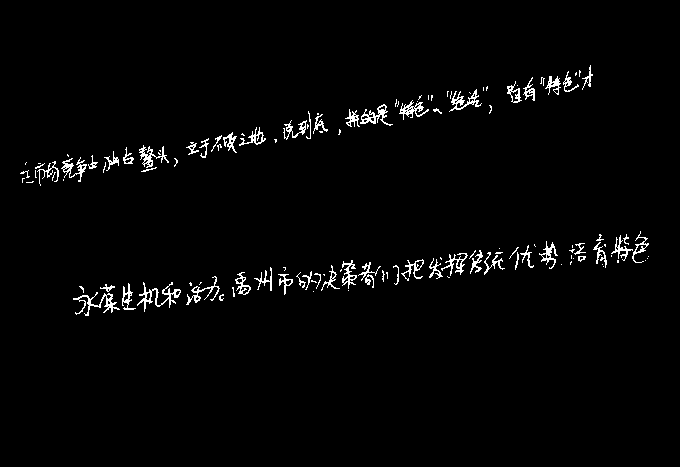 在市场竞争中独占鳌头，立于不败之地，说到底，拼的是“特色”、“绝活”，唯有“特色”才
永葆生机和活力。禹州市的决策者们把发挥传统优势、培育特色